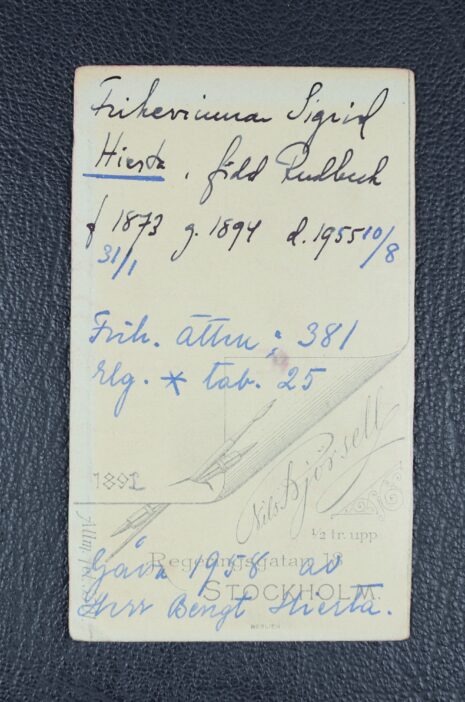 Friherrinnan Sigrid
Hierta, född Rudbeck
f 1873 g. 1894 d. 1955 10/8
31/1
Frih. ätten: 381
Elg. * tab. 25
1891
Nils Björsell
½ tr. upp
Regeringsgatan 18
STOCKHOLM.
Gåva 1958 av
Herr Bengt Hierta.